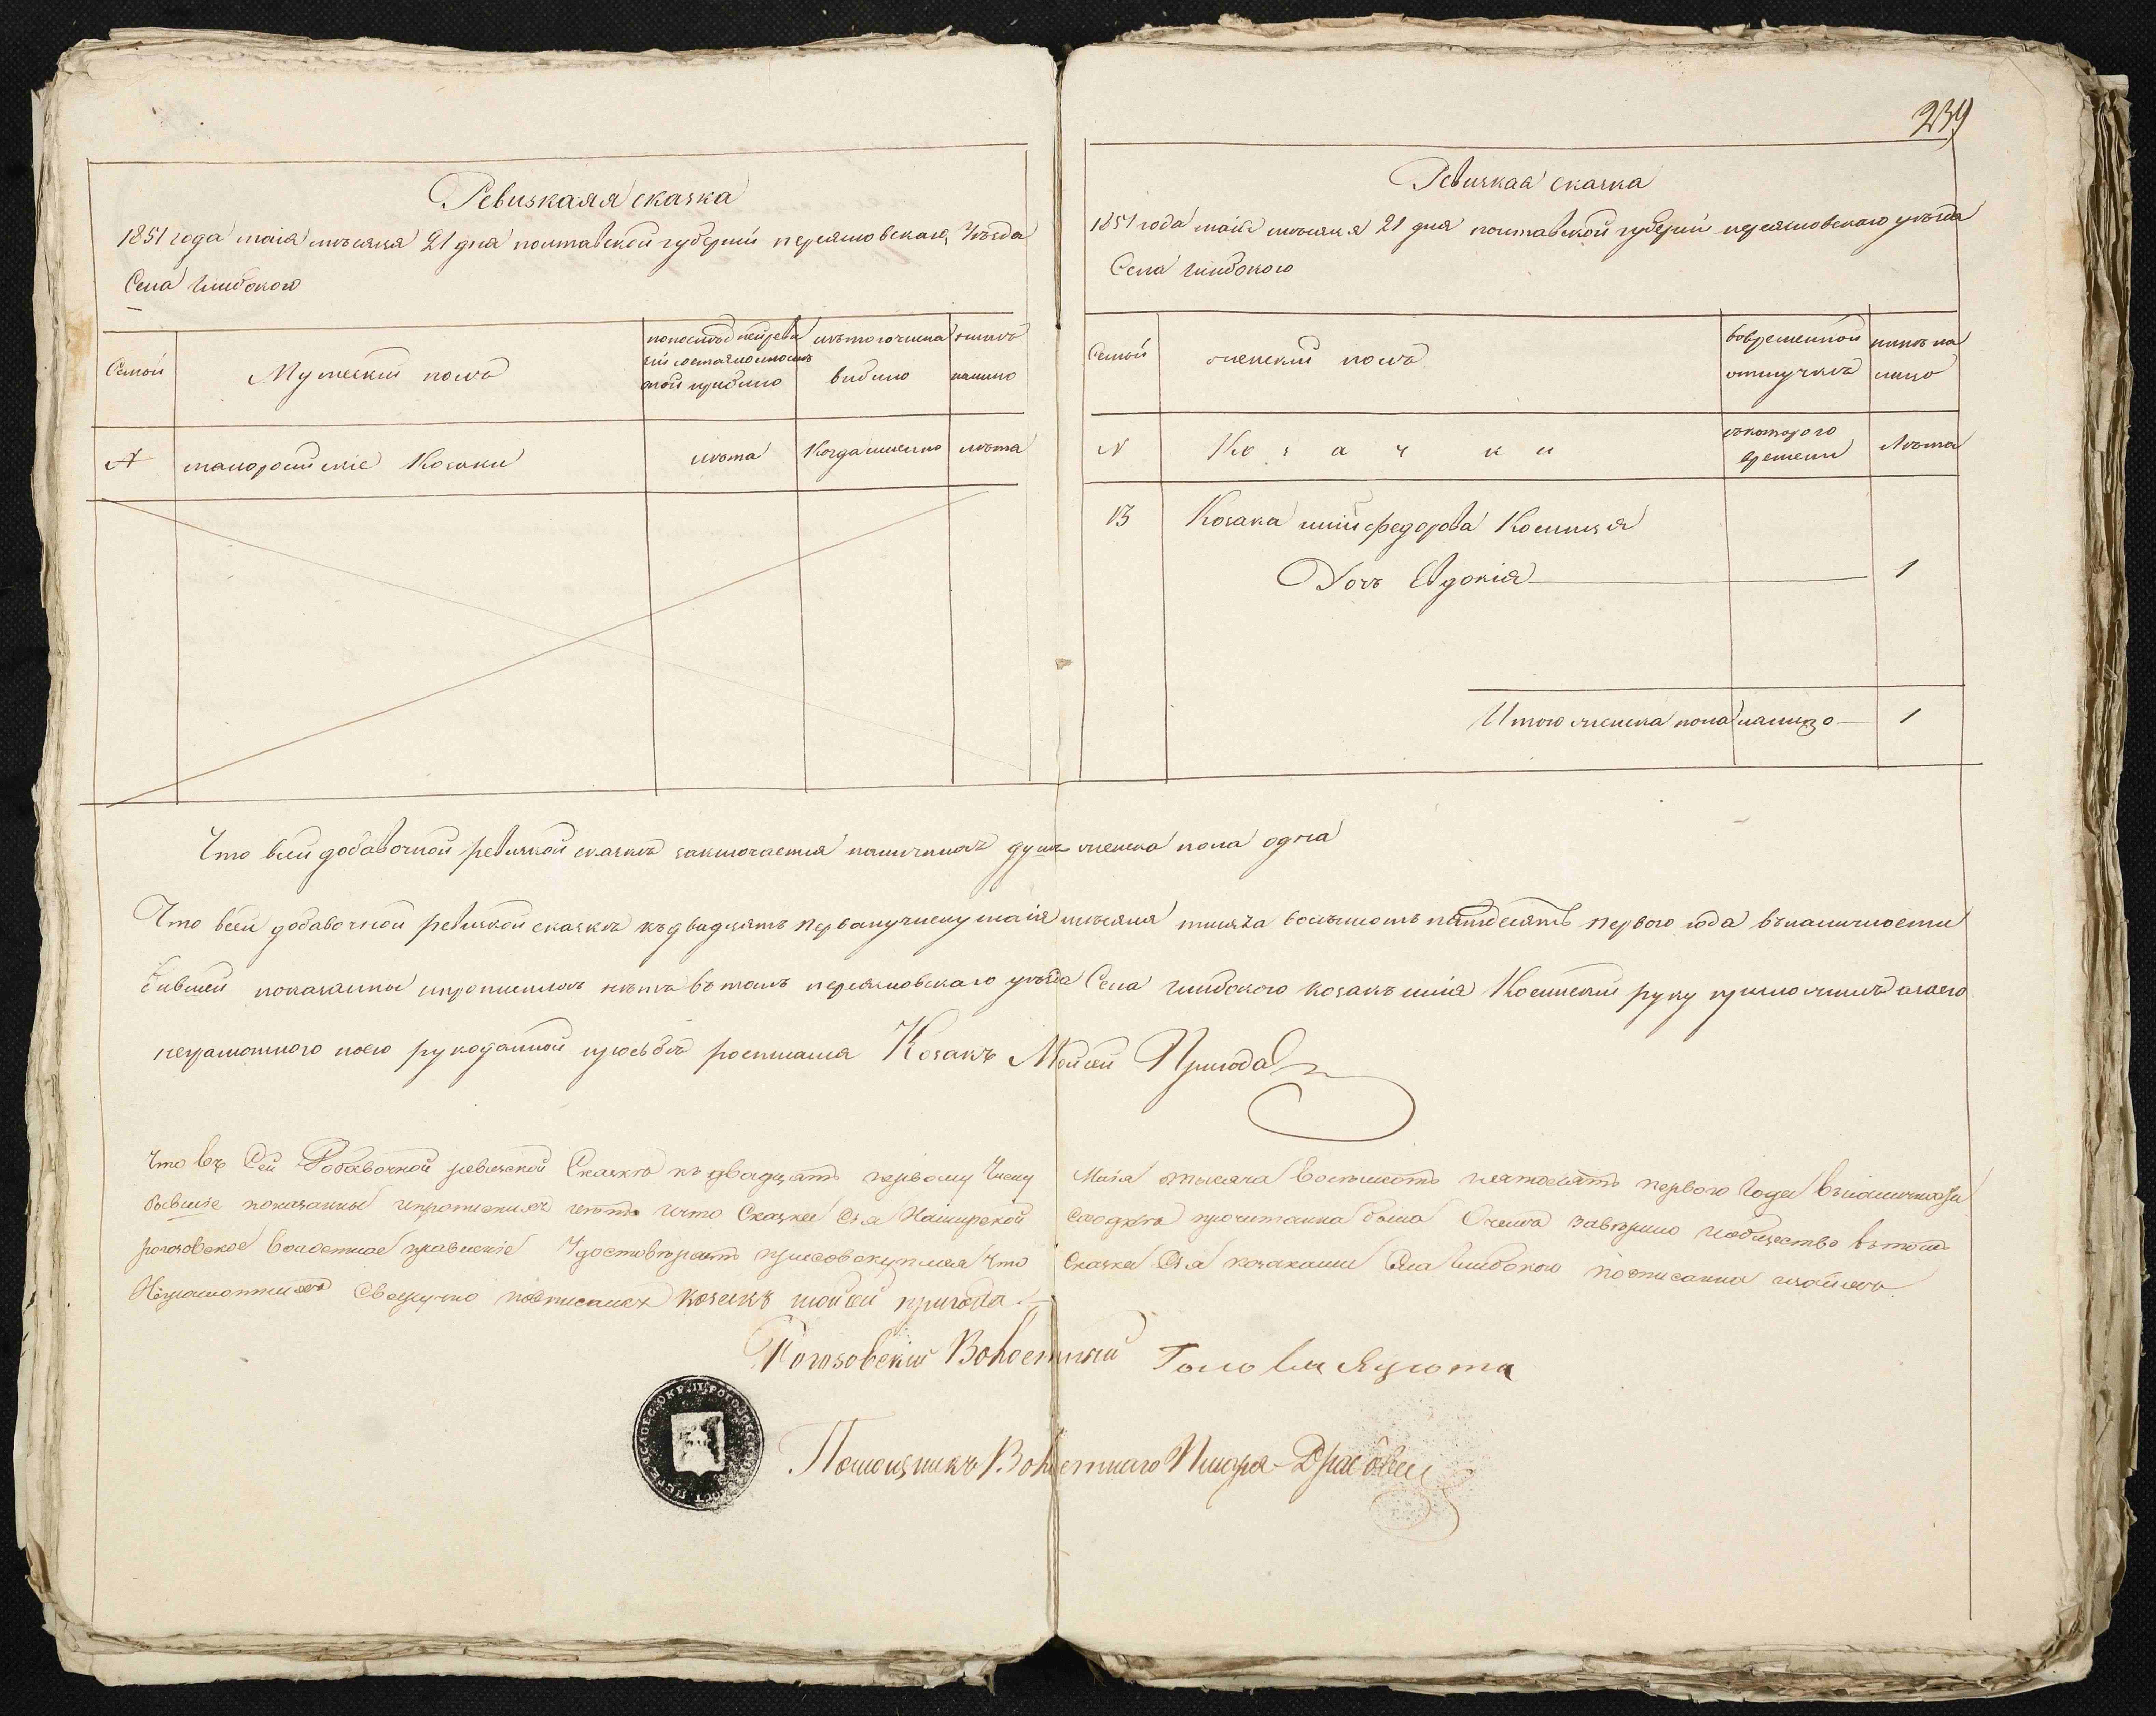 239
Ревизкаяя сказка
1851 года маія мѣсяца 21 дня полтавской губерніи переясловскаго Уѣзда
Села Глибокого
Семьи
Мужескій полъ
по последней реви
зіи состояло и после
оной прибило
изъ того числа
вибило
нинѣ
налицо
№
малороссійскіе Козаки
лѣта
Когда именно
лѣта
Ревизкая сказка
1851 года маія мѣсяца 21 дня полтавской губерніи переясловскаго уѣзда
Села Глибокого
Семьи
женскій полъ
вовременной
отлучкѣ
нинѣ на
лицо
№
Козачки
съкоторого
времени
Лѣта
13
Козака Федорова Косинкя
Дочь Евдокія
1
Итого женска пола налицо
1
Что всей добавочной ревизкой сказкѣ заключается наличнихъ душъ женска пола одна
Что всей добавочной ревизкой сказкѣ къдвадцять первомучислу маія мѣсяця тисяча восъмьсотъ пятдесятъ первого года въналичности
бившей показанны ипропискихъ нѣтъ въ томъ переясловскаго уѣзда Села Глибокого козакъ Илія Косинскій руку приложилъ
неграмотного поего рукоданной прозьбѣ росписался Козакъ Мойсей Пригода
Что въ Сей Добавочной ревизской Сказкѣ къ двадцать первому Числу Маія тысяча восемьсотъ пятдесятъ первого года
бывшіе показанны ипрописнихъ нетъ и что Сказка Сія На мирской сходкѣ прочитанна была въ томъ
рогозовское волостное правленіе Удостовѣряетъ присовокупляя что Сказка Сія козаками Села Глибокого подписанна
Неграмотнихъ Своеручно подписался козакъ мойсей пригода
Рогозовскій Волостный Голова Яцюта
Помощникъ Волостнаго Писаря